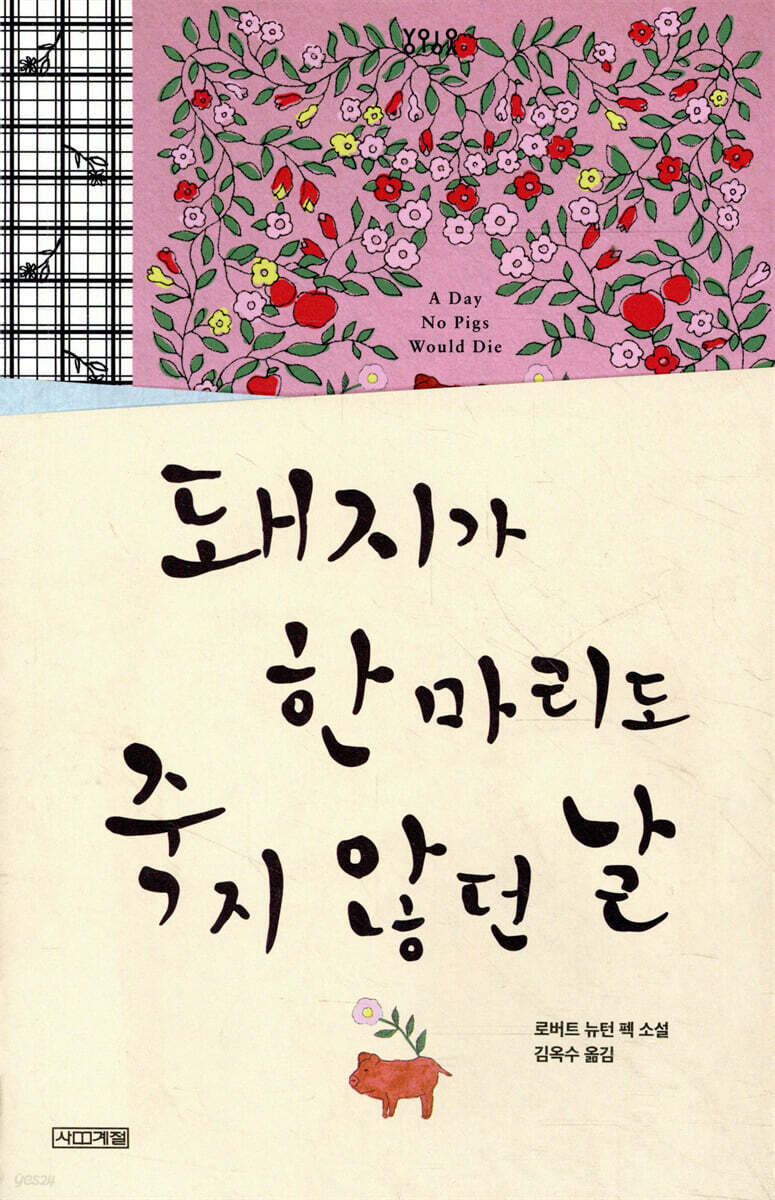 A Day
No Pigs
Would Die
돼지가
한 마리도
죽지 않던 날
로버트 뉴턴 펙 소설
김옥수 옮김
사계절
yes24